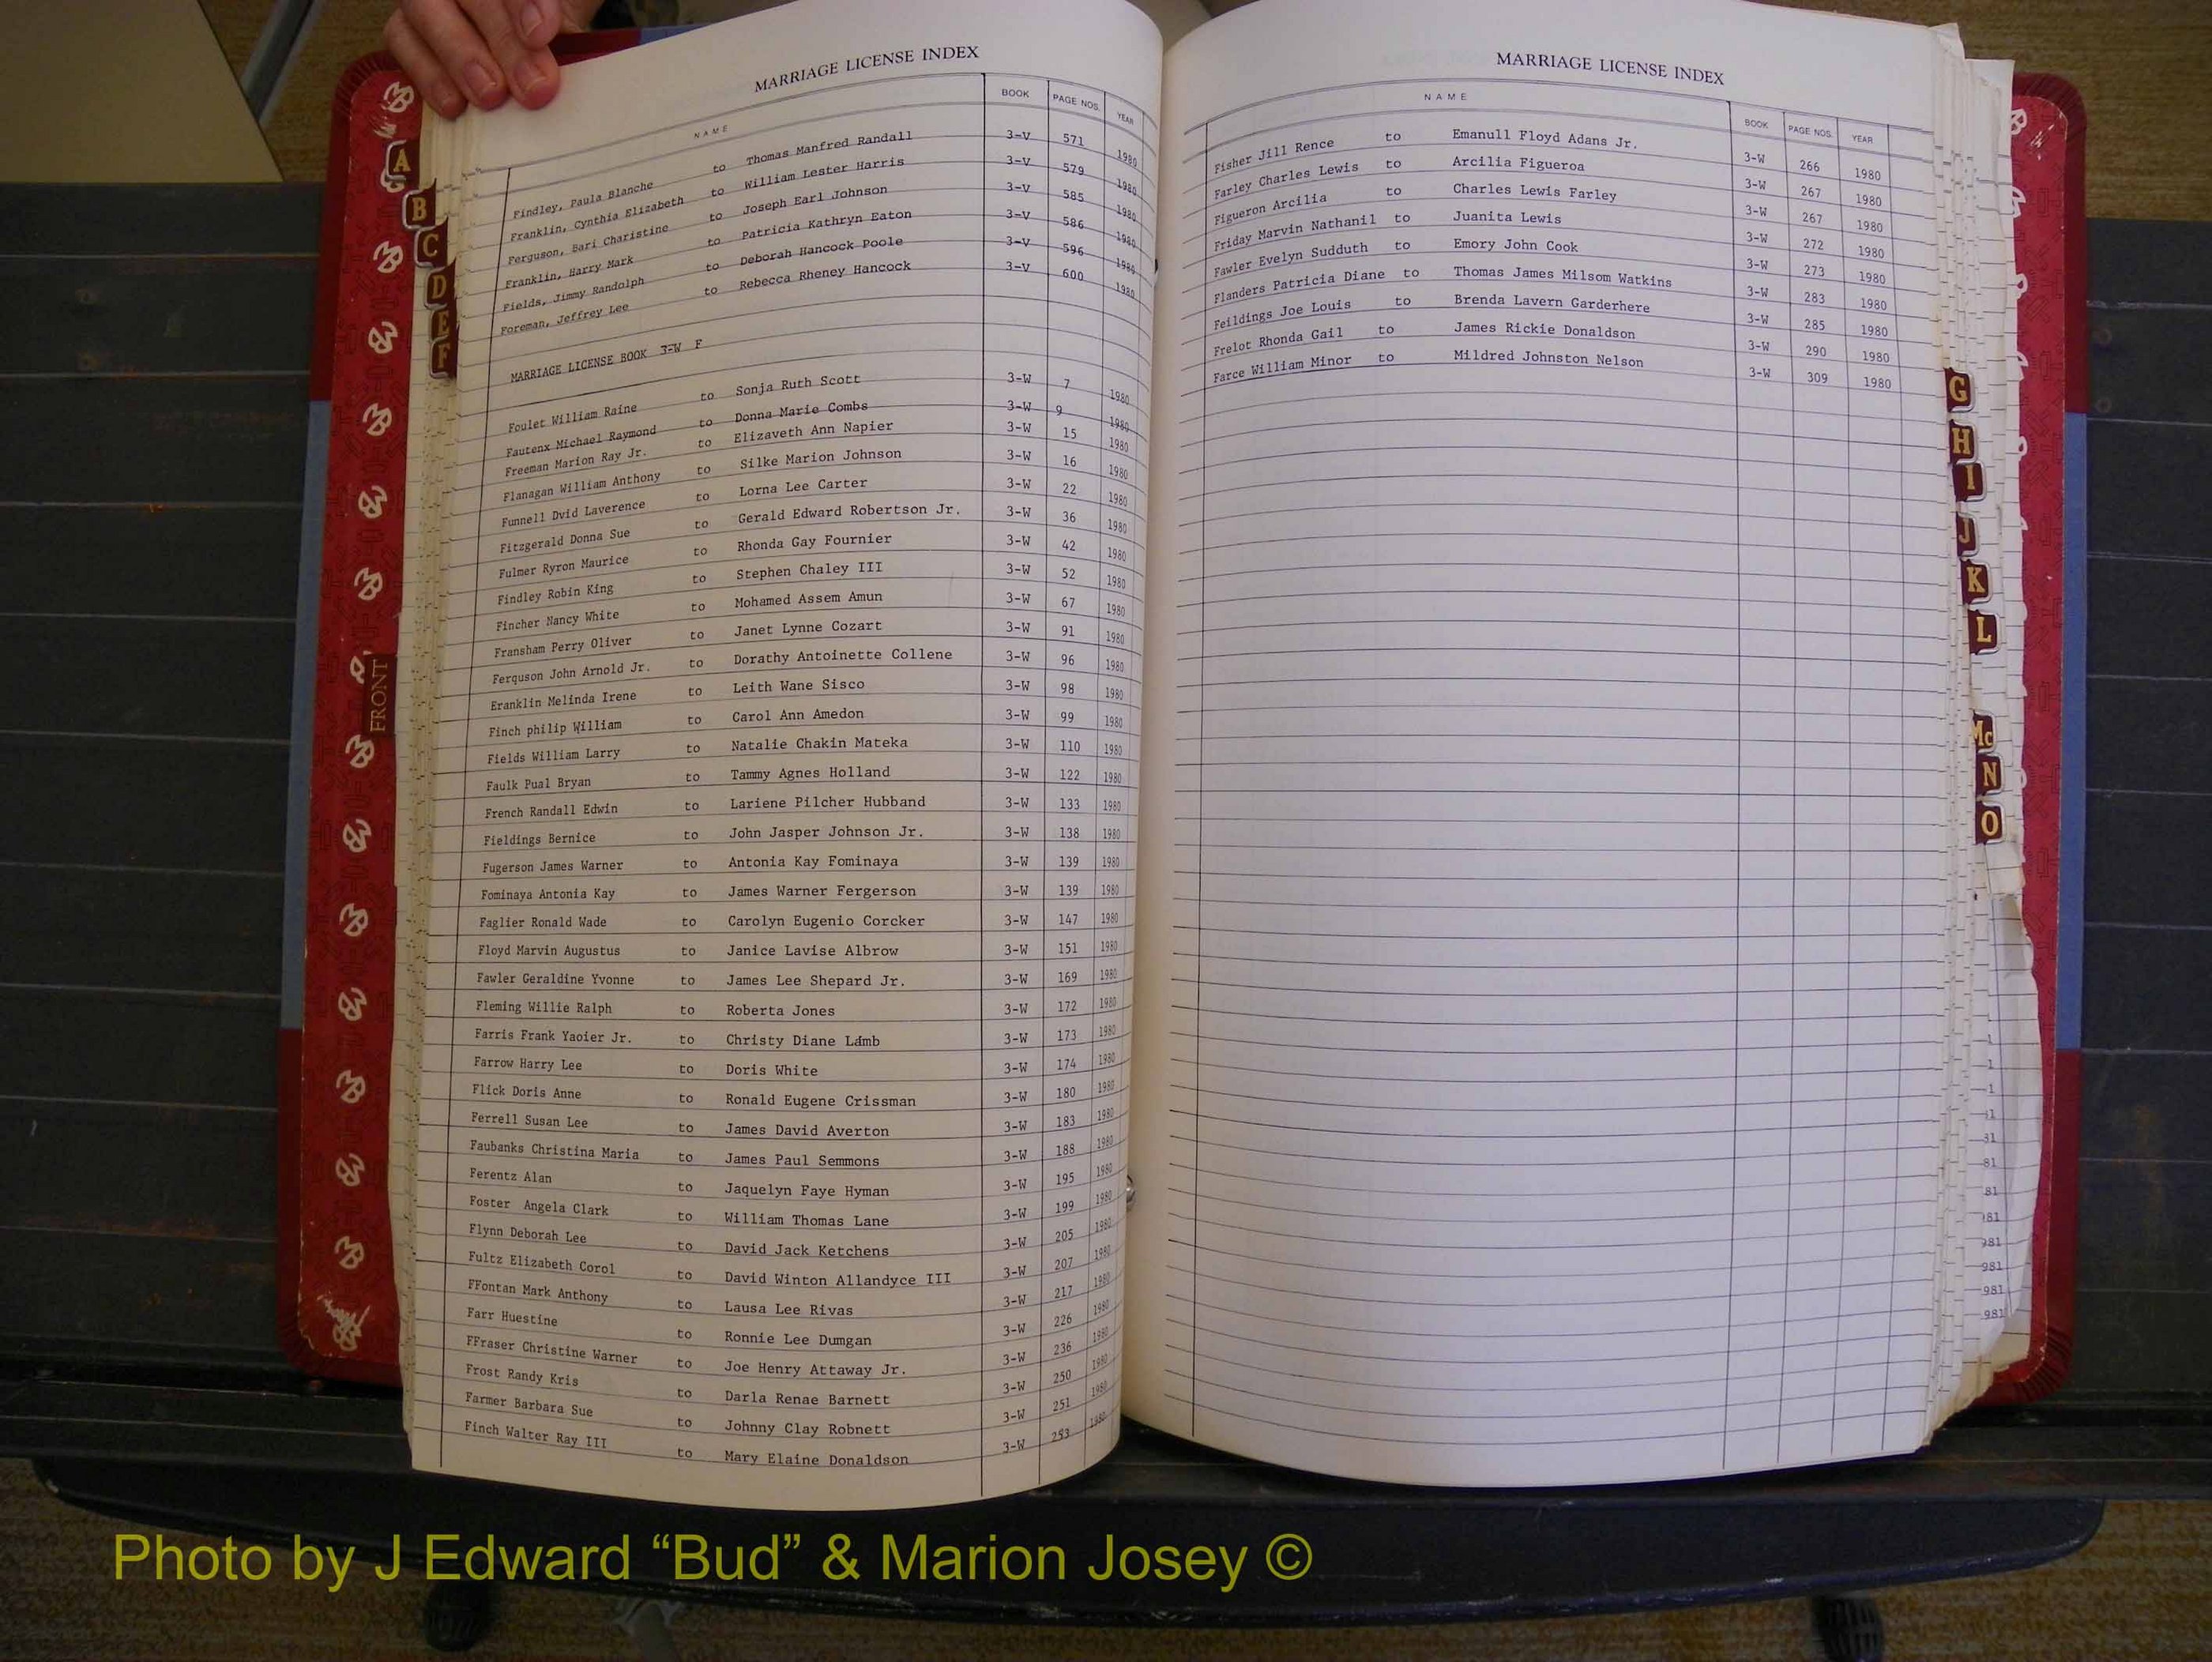 MARRIAGE LICENSE INDEX
NAME BOOK PAGE NOS. YEAR
Findley, Paula Blanche to Thomas Manfred Randall 3-V 571 1980
Franklin, Cynthia Elizabeth to William Lester Harris 3-V 579 1980
Ferguson, Bari Charistine to Joseph Earl Johnson 3-V 585 1980
Franklin, Harry Mark to Patricia Kathryn Eaton 3-V 586 1980
Fields, Jimmy Randolph to Deborah Hancock Poole 3-V 596 1980
Foreman, Jeffrey Lee to Rebecca Rheney Hancock 3-V 600 1980
MARRIAGE LICENSE BOOK 3-W F
Foulet William Raine to Sonja Ruth Scott 3-W 7 1980
Fautenx Michael Raymond to Donna Marie Combs 3-W 9 1980
Freeman Marion Ray Jr. to Elizaveth Ann Napier 3-W 15 1980
Flanagan William Anthony to Silke Marion Johnson 3-W 16 1980
Funnell Dvid Laverence to Lorna Lee Carter 3-W 22 1980
Fitzgerald Donna Sue to Gerald Edward Robertson Jr. 3-W 36 1980
Fulmer Ryron Maurice to Rhonda Gay Fournier 3-W 42 1980
Findley Robin King to Stephen Chaley III 3-W 52 1980
Fincher Nancy White to Mohamed Assem Amun 3-W 67 1980
Fransham Perry Oliver to Janet Lynne Cozart 3-W 91 1980
Ferquson John Arnold Jr. to Dorathy Antoinette Collene 3-W 96 1980
Eranklin Melinda Irene to Leith Wane Sisco 3-W 98 1980
Finch philip William to Carol Ann Amedon 3-W 99 1980
Fields William Larry to Natalie Chakin Mateka 3-W 110 1980
Faulk Pual Bryan to Tammy Agnes Holland 3-W 122 1980
French Randall Edwin to Lariene Pilcher Hubband 3-W 133 1980
Fieldings Bernice to John Jasper Johnson Jr. 3-W 138 1980
Fugerson James Warner to Antonia Kay Fominaya 3-W 139 1980
Fominaya Antonia Kay to James Warner Fergerson 3-W 139 1980
Faglier Ronald Wade to Carolyn Eugenio Corcker 3-W 147 1980
Floyd Marvin Augustus to Janice Lavise Albrow 3-W 151 1980
Fawler Geraldine Yvonne to James Lee Shepard Jr. 3-W 169 1980
Fleming Willie Ralph to Roberta Jones 3-W 172 1980
Farris Frank Yaoier Jr. to Christy Diane Lamb 3-W 173 1980
Farrow Harry Lee to Doris White 3-W 174 1980
Flick Doris Anne to Ronald Eugene Crissman 3-W 180 1980
Ferrell Susan Lee to James David Averton 3-W 183 1980
Faubanks Christina Maria to James Paul Semmons 3-W 188 1980
Ferentz Alan to Jaquelyn Faye Hyman 3-W 195 1980
Foster Angela Clark to William Thomas Lane 3-W 199 1980
Flynn Deborah Lee to David Jack Ketchens 3-W 205 1980
Fultz Elizabeth Corol to David Winton Allandyce III 3-W 207 1980
FFontan Mark Anthony to Lausa Lee Rivas 3-W 217 1980
Farr Huestine to Ronnie Lee Dumgan 3-W 226 1980
FFraser Christine Warner to Joe Henry Attaway Jr. 3-W 236 1980
Frost Randy Kris to Darla Renae Barnett 3-W 250 1980
Farmer Barbara Sue to Johnny Clay Robnett 3-W 251 1980
Finch Walter Ray III to Mary Elaine Donaldson 3-W 253 1980
MARRIAGE LICENSE INDEX
NAME BOOK PAGE NOS. YEAR
Fisher Jill Rence to Emanull Floyd Adans Jr. 3-W 266 1980
Farley Charles Lewis to Arcilia Figueroa 3-W 267 1980
Figueron Arcilia to Charles Lewis Farley 3-W 267 1980
Friday Marvin Nathanil to Juanita Lewis 3-W 272 1980
Fawler Evelyn Sudduth to Emory John Cook 3-W 273 1980
Flanders Patricia Diane to Thomas James Milsom Watkins 3-W 283 1980
Feildings Joe Louis to Brenda Lavern Garderhere 3-W 285 1980
Frelot Rhonda Gail to James Rickie Donaldson 3-W 290 1980
Farce William Minor to Mildred Johnston Nelson 3-W 309 1980
A
B
C
D
E
F
FRONT
G
H
I
J
K
L
Mc
N
O
1
1
1
31
81
81
81
981
981
981
981
Photo by J Edward “Bud” & Marion Josey ©